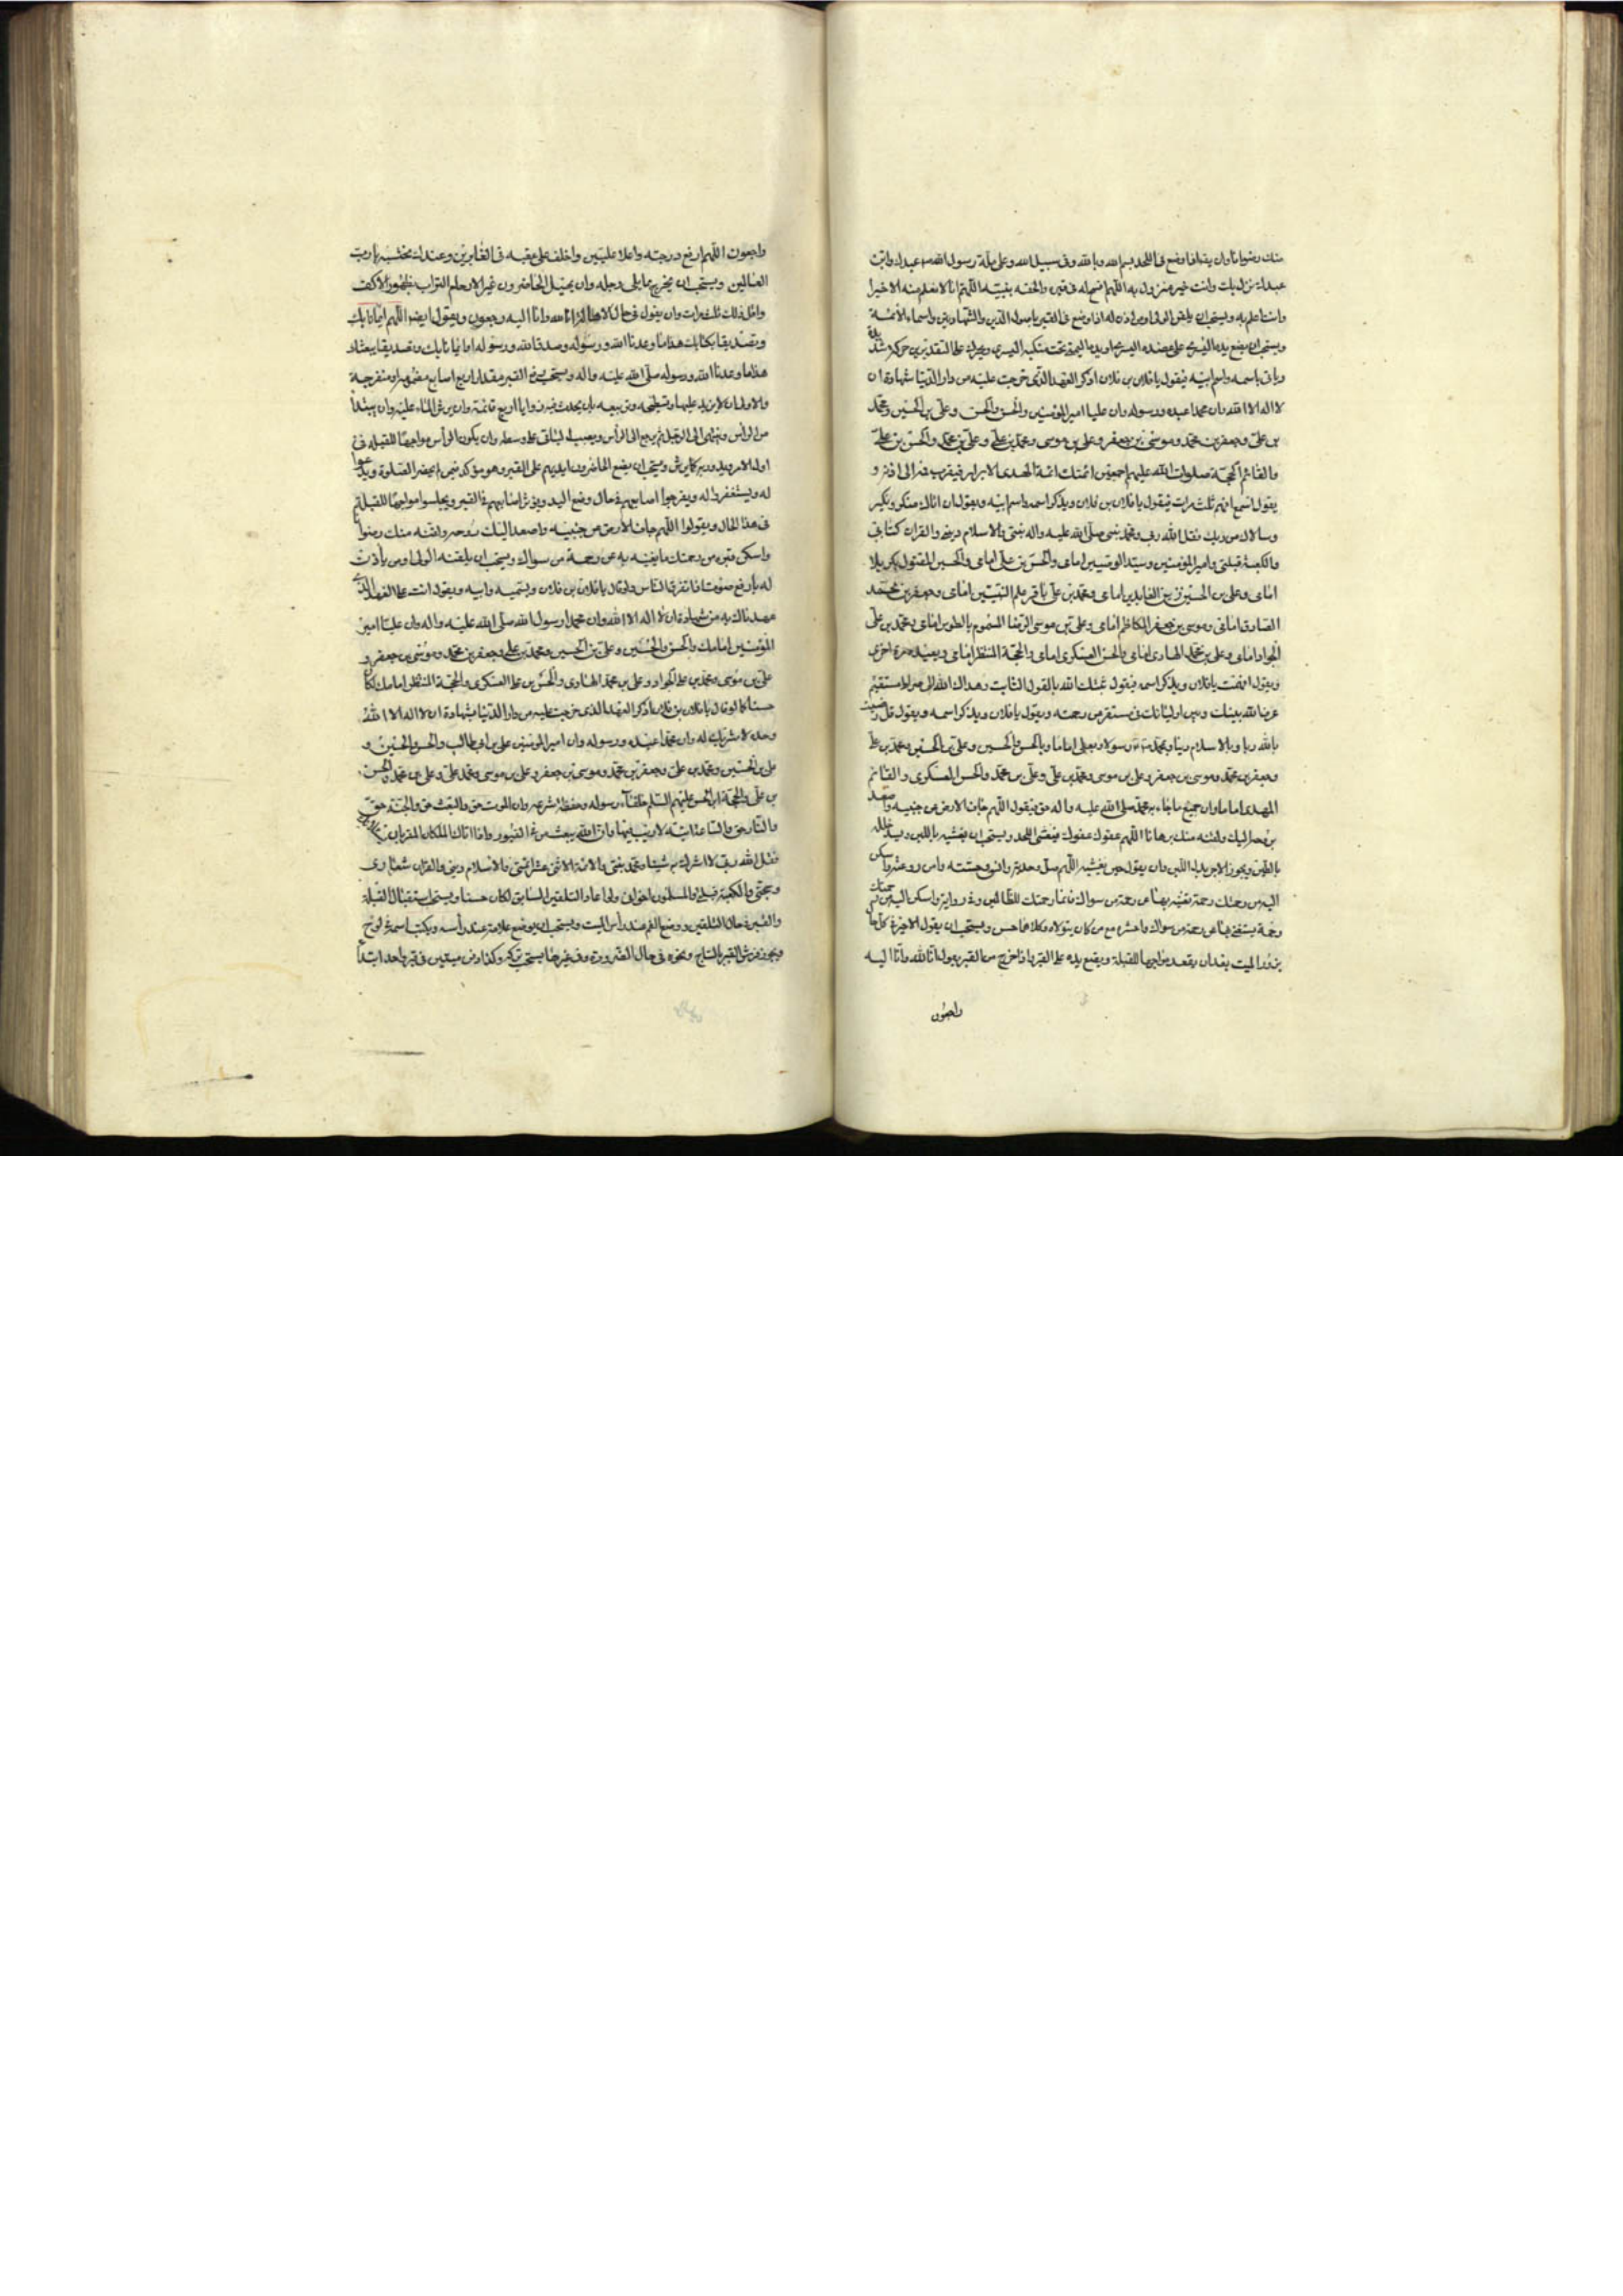 منك رضوانا وان يقول اذا وضع فى اللحد بسم الله وبالله وفى سبيل الله وعلى ملة رسول الله عبدك وابن
عبدك نزل بك وانت خير منزول به اللهم افسح له فى قبره والحقه بنبيه اللهم انا لا نعلم منه الا خيرا
وانت اعلم به ويستحب ان يلقن الولى او من اذن له اذا وضع فى القبر باصول الدين والشهادتين واسماء الائمة
ويستحب ان يضع يده اليسرى على عضده اليسرى ويده اليمنى تحت منكبه اليسرى ويحركه على التقديرين حركة شديدة
وياتى باسمه واسم ابيه فيقول يا فلان بن فلان اذكر العهد الذى خرجت عليه من دار الدنيا شهادة ان
لا اله الا الله وان محمدا عبده ورسوله وان عليا امير المؤمنين والحسن والحسين وعلى بن الحسين ومحمد
بن على وجعفر بن محمد وموسى بن جعفر وعلى بن موسى ومحمد بن على وعلى بن محمد والحسن بن على
والقائم الحجة صلوات الله عليهم اجمعين ائمتك ائمة الهدى الابرار فيقرب فمه الى اذنه و
يقول اسمع افهم ثلث مرات فيقول يا فلان بن فلان ويذكر اسمه واسم ابيه ويقول ان اتاك منكر ونكير
وسالاك من ربك فقل الله ربى ومحمد نبيى صلى الله عليه واله نبيى والاسلام دينى والقران كتابى
والكعبة قبلتى وامير المؤمنين وسيد الوصيين امامى والحسن بن على امامى والحسين المقتول بكربلا
امامى وعلى بن الحسين زين العابدين امامى ومحمد بن على باقر علم النبيين امامى وجعفر بن محمد
الصادق امامى وموسى بن جعفر الكاظم امامى وعلى بن موسى الرضا المسموم بالطوس امامى ومحمد بن على
الجواد امامى وعلى بن محمد الهادى امامى والحسن العسكرى امامى والحجة المنتظر امامى ويعيد مرة اخرى
ويقول افهمت يا فلان ويذكر اسمه فيقول ثبتك الله بالقول الثابت وهداك الله الى صراط مستقيم
عرف الله بينك وبين اوليائك فى مستقر من رحمته ويقول يا فلان ويذكر اسمه ويقول قل رضيت
بالله ربا وبالاسلام دينا وبمحمد رسولا وبعلى اماما وبالحسن والحسين وعلى بن الحسين ومحمد بن على
وجعفر بن محمد وموسى بن جعفر وعلى بن موسى ومحمد بن على وعلى بن محمد والحسن العسكرى والقائم
المهدى اماما وان جميع ما جاء به محمد صلى الله عليه واله حق فيقول اللهم جاف الارض عن جنبيه واصعد
بروحه اليك ولقنه منك برهانا اللهم عفوك عفوك فيغشى اللحد ويستحب ان يغشيه باللبن ويسد خلله
بالطين ويجوز الاجر بدله اللبن وان يقول حين يغشيه اللهم صل وحدته وانس وحشته وامن روعته واسكن
اليه من رحمتك رحمة تغنيه بها عن رحمة من سواك فانما رحمتك للظالمين وفى رواية واسكن اليه من رحمتك
رحمة يستغنى بها عن رحمة من سواك واحشره مع من كان يتولاه وكلاهما حسن ويستحب ان يقول الاخير كلما
زار الميت بعد ان يقعد مواجها للقبلة ويضع يده على القبر واذا خرج من القبر يقول انا لله وانا اليه
راجعون
راجعون اللهم ارفع درجته واعلا عليين واخلف على عقبه فى الغابرين وعندك نحتسبه يا رب
العالمين ويستحب ان يخرج مما يلى رجله وان يهيل الحاضرون غير الارحام التراب بظهور الاكف
واقل ذلك ثلث مرات وان يقول فى حال الاهالة انا لله وانا اليه راجعون ويقول ايضا اللهم ايمانا بك
وتصديقا بكتابك هذا ما وعدنا الله ورسوله وصدق الله ورسوله او ايمانا بك وتصديقا ببعثك
هذا ما وعدنا الله ورسوله صلى الله عليه واله ويستحب رفع القبر مقدار اربع اصابع مضمومة او منفرجة
والاولى ان لا يزيد عليها وتسطيحه وتربيعه بان يحدث فيه زوايا اربع قائمة وان يرش الماء عليه وان يبتدأ
من الرأس وينتهى الى الرجل ثم يرجع الى الرأس ويصب الباقى على وسطه وان يكون الرأس مواجها للقبلة فى
اول الامر ويستحب ان يضع الحاضرون ايديهم على القبر وهو مؤكد لمن لم يحضر الصلوة ويدعوا
له ويستغفروا له ويفرجوا اصابعهم فى حال وضع اليد ويؤثر اصابعهم فى القبر ويجلسوا مواجها للقبلة
فى هذا الحال ويقولوا اللهم جاف الارض عن جنبيه واصعد اليك روحه ولقنه منك رضوانا
واسكن قبره من رحمتك ما يغنيه به عن رحمة من سواك ويستحب ان يلقنه الولى او من ياذن
له بارفع صوت اذا تفرق الناس ولو قال يا فلان بن فلان ويسميه وابيه ويقول انت على العهد الذى
عهدناك به من شهادة ان لا اله الا الله وان محمدا رسول الله صلى الله عليه واله وان عليا امير
المؤمنين امامك والحسن والحسين وعلى بن الحسين ومحمد بن على وجعفر بن محمد وموسى بن جعفر و
على بن موسى ومحمد بن على الجواد وعلى بن محمد الهادى والحسن بن على العسكرى والحجة المنتظر امامك لكان
حسنا كما لو قال يا فلان بن فلان اذكر العهد الذى خرجت عليه من دار الدنيا شهادة ان لا اله الا الله
وحده لا شريك له وان محمدا عبده ورسوله وان امير المؤمنين على بن ابى طالب والحسن والحسين و
على بن الحسين ومحمد بن على وجعفر بن محمد وموسى بن جعفر وعلى بن موسى ومحمد بن على وعلى بن محمد والحسن
بن على والحجة ابن الحسن عليهم السلم خلفاء رسوله وحفظة شرعه وان الموت حق والبعث حق والجنة حق
والنار حق والساعة اتية لا ريب فيها وان الله يبعث من فى القبور واذا اتاك الملكان المقربان
فقل الله ربى لا اشرك به شيئا ومحمد نبيى والائمة الاثنى عشر ائمتى والاسلام دينى والقران شعارى
وحجتى والكعبة قبلتى والمسلمون اخوانى ولو اعاد التلقين السابق لكان حسنا ويستحب استقبال القبلة
والقبر فى حال التلقين ووضع الفم عند رأس الميت ويستحب ان يوضع علامة عند رأسه ويكتب اسمه فى لوح
ويجوز فرش القبر بالساج ونحوه فى حال الضرورة وفى غيرها يستحب تركه وكذا دفن ميتين فى قبر واحد ابتداء